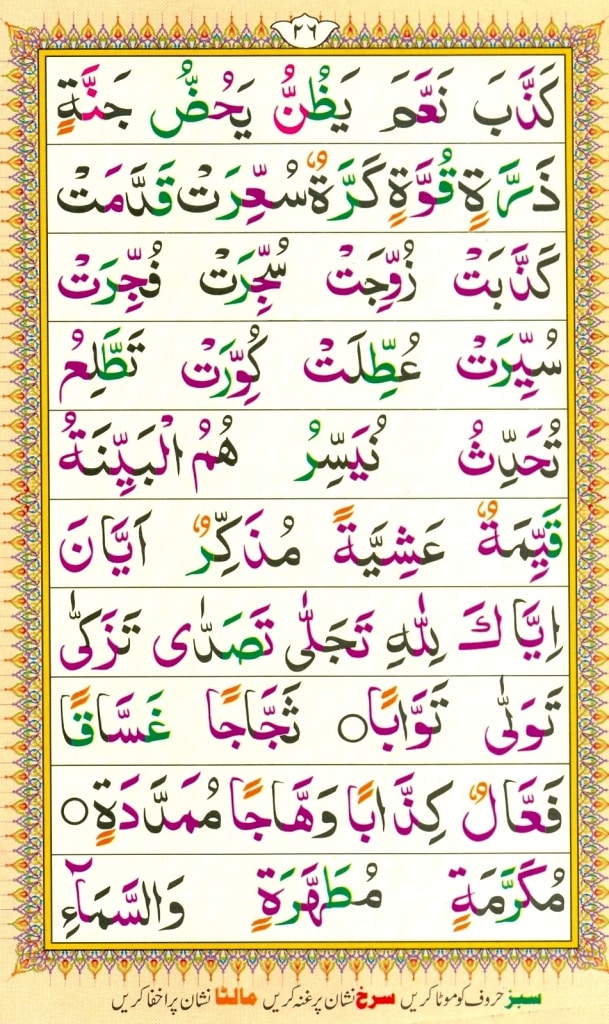 ٢٦
كَذَّبَ نَعَّمَ يَظُنُّ يَحُضُّ جَنَّةٍ
ذَرَّةٍ قُوَّةٍ كَرَّةٌ سُعِّرَتْ قَدَّمَتْ
كَذَّبَتْ زُوِّجَتْ سُجِّرَتْ فُجِّرَتْ
سُيِّرَتْ عُطِّلَتْ كُوِّرَتْ تَطَّلِعُ
تُحَدِّثُ نُيَسِّرُ هُمُ الْبَيِّنَةُ
قَيِّمَةٌ عَشِيَّةً مُذَكِّرٌ اَيَّانَ
اِيَّاكَ لِلّٰهِ تَجَلّٰى تَصَدّٰى تَزَكّٰى
تَوَلّٰى تَوَّابًا○ ثَجَّاجًا غَسَّاقًا
فَعَّالٌ كِذَّابًا وَهَّاجًا مُمَدَّدَةٍ○
مُكَرَّمَةٍ مُطَهَّرَةٍ وَالسَّمَآءِ
سبز حروف کو موٹا کریں سرخ نشان پر غنہ کریں مالٹا نشان پر اخفا کریں